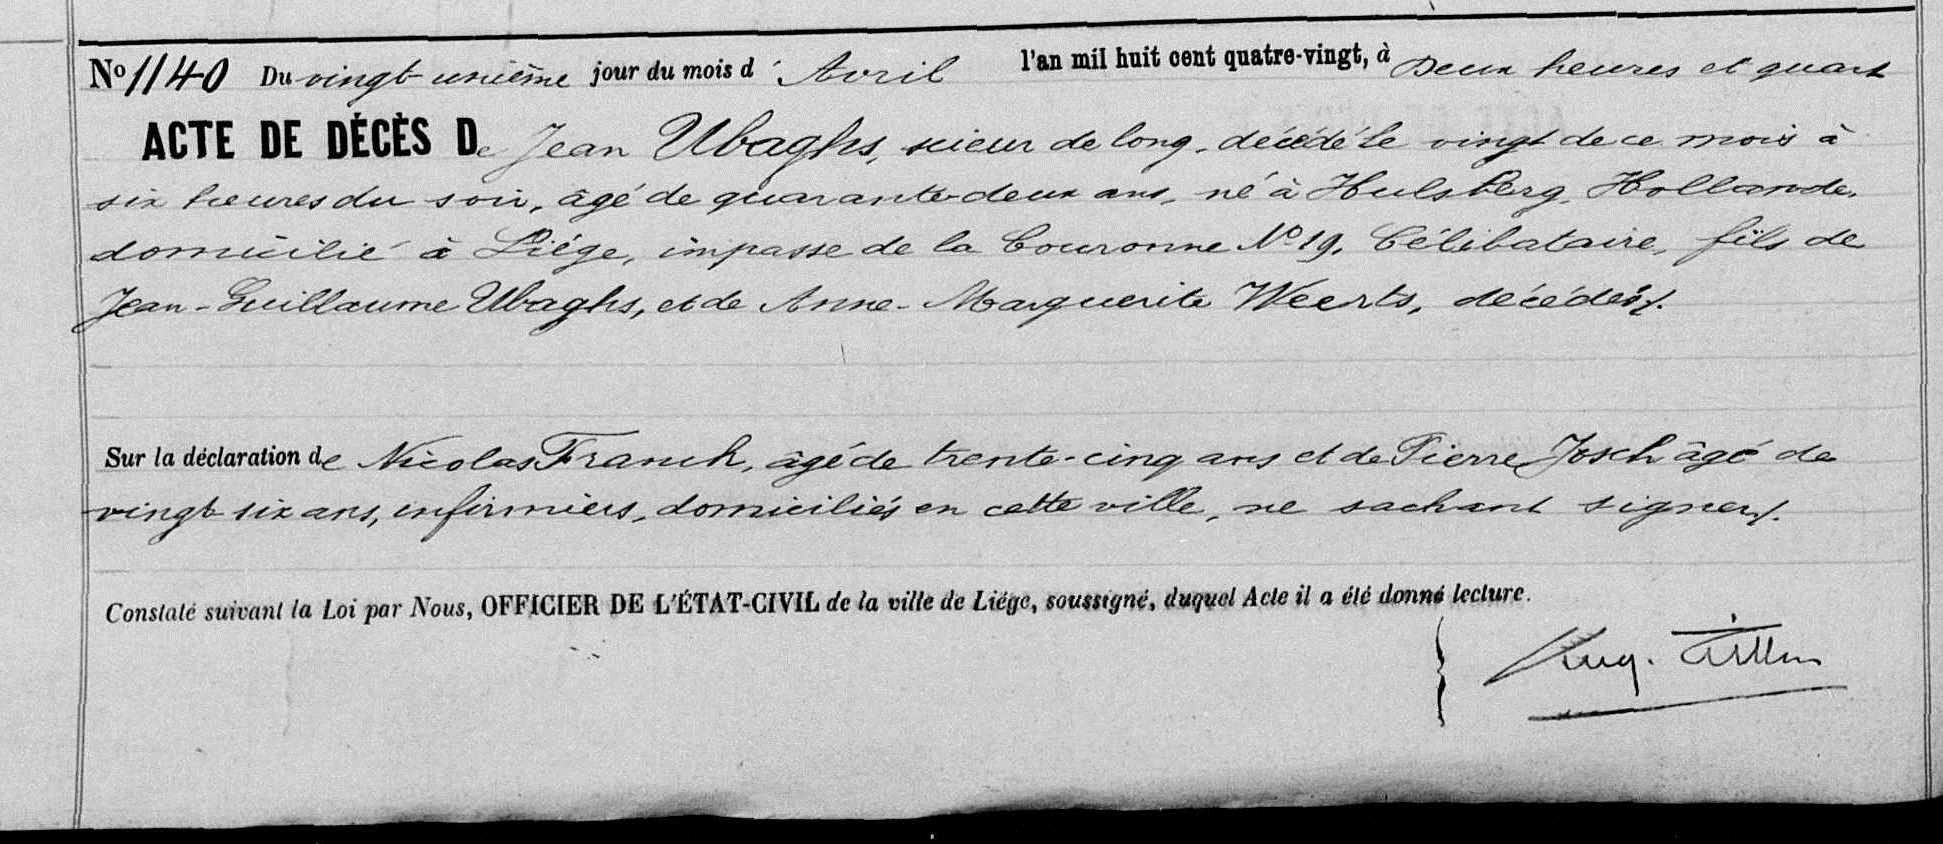 No 1140 Du vingt-unième jour du mois d'Avril l'an mil huit cent quatre-vingt, à Deux heures et quart
ACTE DE DÉCÈS De Jean Ubaghs, scieur de long, décédé le vingt de ce mois à
six heures du soir, âgé de quarante-deux ans, né à Hulsberg, Hollande,
domicilié à Liége, impasse de la Couronne No 19, Célibataire, fils de
Jean-Guillaume Ubaghs, et de Anne-Marguerite Weerts, décédés/.
Sur la déclaration de Nicolas Franck, âgé de trente-cinq ans et de Pierre Josch âgé de
vingt-six ans, infirmiers, domiciliés en cette ville, ne sachant signer/.
Constaté suivant la Loi par Nous, OFFICIER DE L'ÉTAT-CIVIL de la ville de Liége, soussigné, duquel Acte il a été donné lecture.